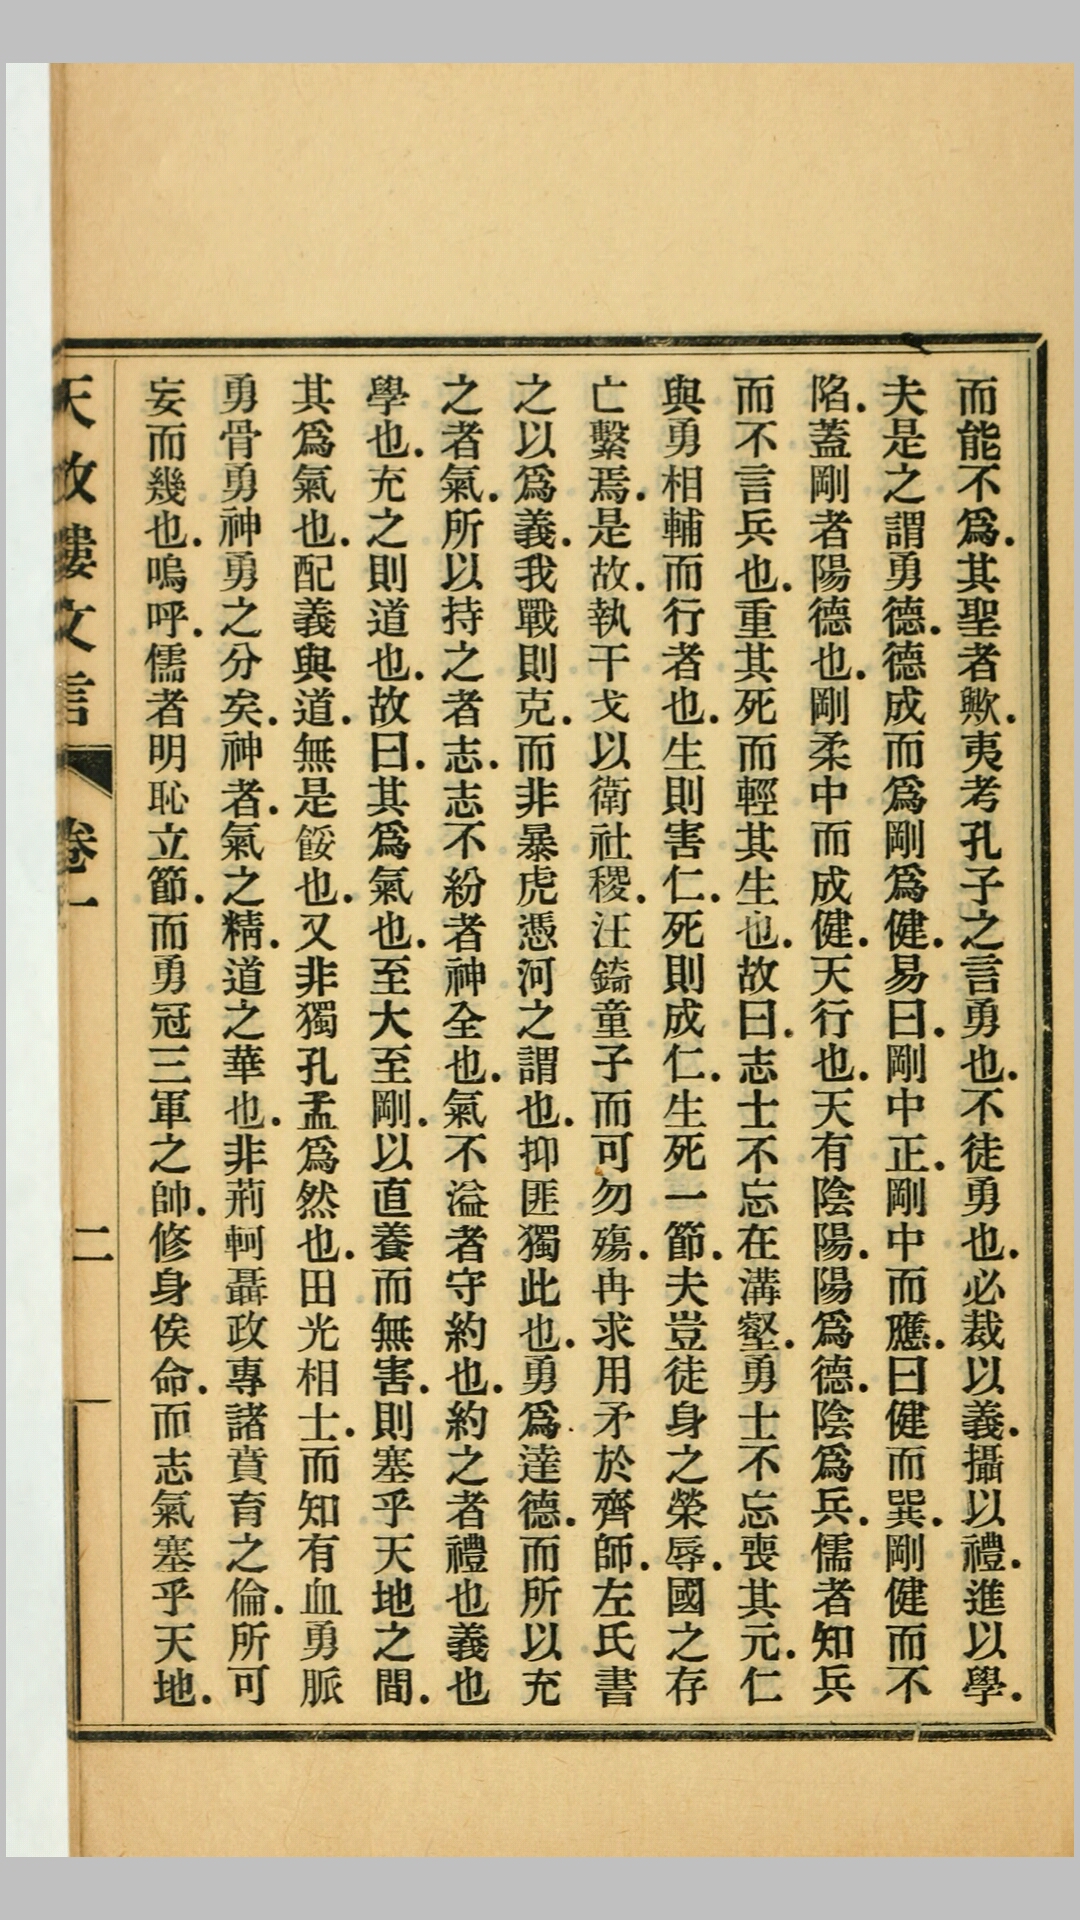 而能不爲.其聖者歟.夷考孔子之言勇也.不徒勇也.必裁以義.攝以禮.進以學.
夫是之謂勇德.德成而爲剛爲健.易曰.剛中正.剛中而應.曰健而巽.剛健而不
陷.蓋剛者陽德也.剛柔中而成健.天行也.天有陰陽.陽爲德.陰爲兵.儒者知兵
而不言兵也.重其死而輕其生也.故曰.志士不忘在溝壑.勇士不忘喪其元.仁
與勇相輔而行者也.生則害仁.死則成仁.生死一節.夫豈徒身之榮辱.國之存
亡繫焉.是故.執干戈以衛社稷.汪錡童子而可勿殤.冉求用矛於齊師.左氏書
之以爲義.我戰則克.而非暴虎憑河之謂也.抑匪獨此也.勇爲達德.而所以充
之者氣.所以持之者志.志不紛者神全也.氣不溢者守約也.約之者禮也義也
學也.充之則道也.故曰.其爲氣也.至大至剛.以直養而無害.則塞乎天地之間.
其爲氣也.配義與道.無是餒也.又非獨孔孟爲然也.田光相士.而知有血勇脈
勇骨勇神勇之分矣.神者.氣之精.道之華也.非荊軻聶政專諸賁育之倫.所可
妄而幾也.嗚呼.儒者明恥立節.而勇冠三軍之帥.修身俟命.而志氣塞乎天地.
天放樓文言 卷一 二